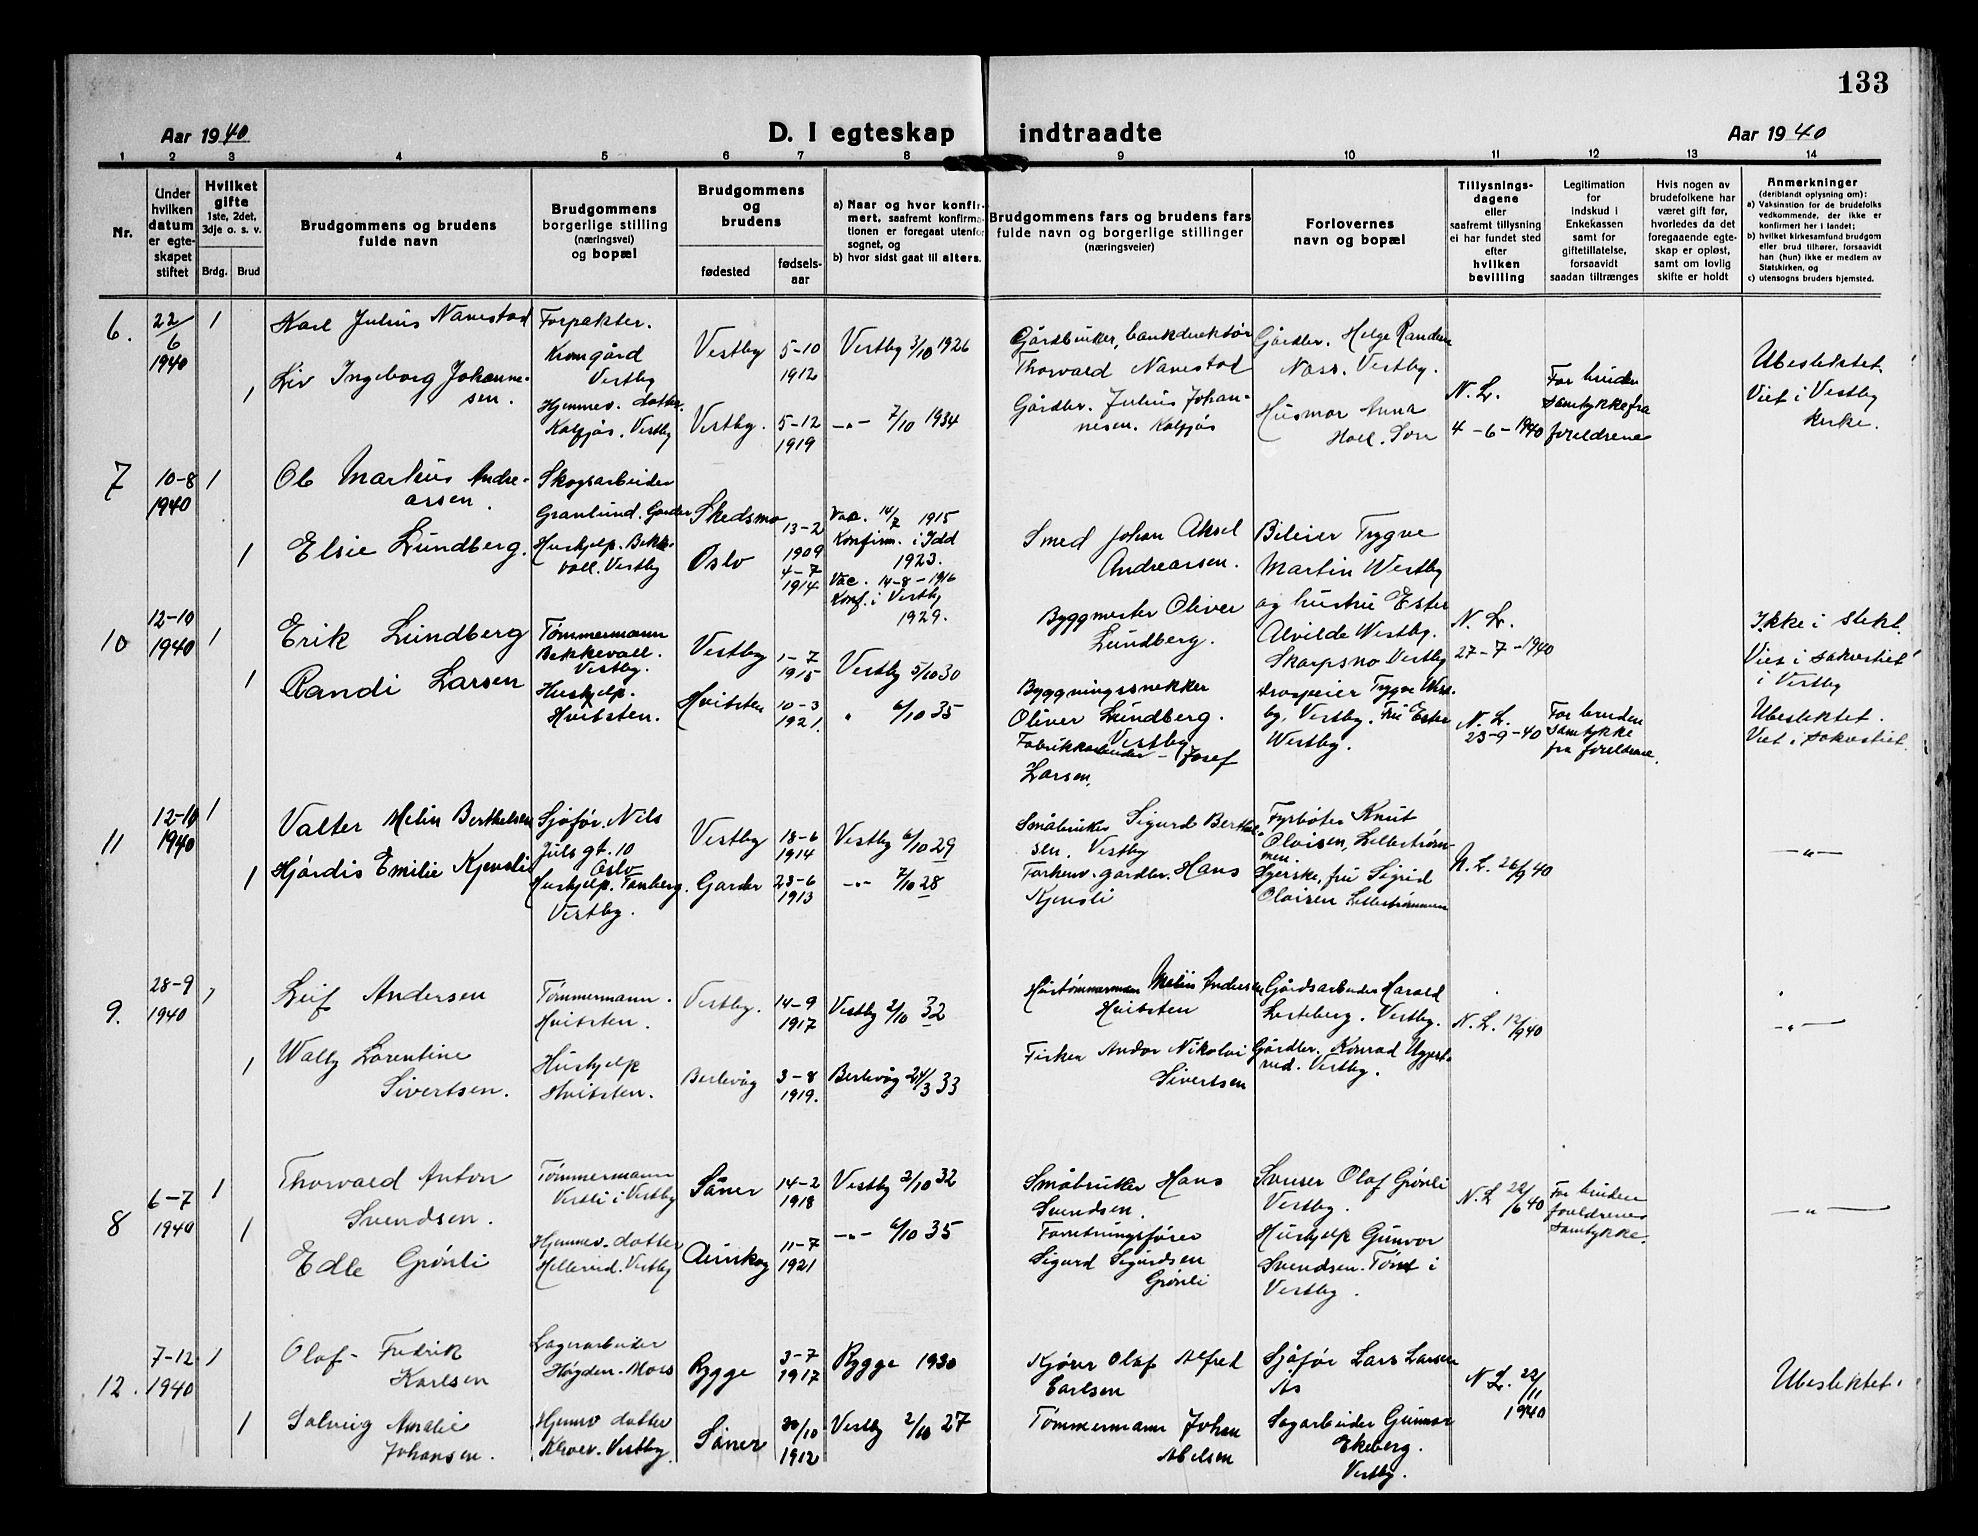 133
Aar 1940
D. I egteskap indtraadte
Aar 1940
1 2 3 4 5 6 7 8 9 10 11 12 13 14
Nr.
Under
hvilken
datum
er egte-
skapet
stiftet
Hvilket
gifte
1ste, 2det,
3dje o. s. v.
Brdg. Brud
Brudgommens og brudens
fulde navn
Brudgommens
borgerlige stilling
(næringsvei)
og bopæl
Brudgommens
og
brudens
fødested
fødsels-
aar
a) Naar og hvor konfir-
mert, saafremt konfirma-
tionen er foregaat utenfor
sognet, og
b) hvor sidst gaat til alters.
Brudgommens fars og brudens fars
fulde navn og borgerlige stillinger
(næringsveier)
Forlovernes
navn og bopæl
Tillysnings-
dagene
eller
saafremt tillysning
ei har fundet sted
efter
hvilken
bevilling
Legitimation
for
Indskud i
Enkekassen
samt for
giftetillatelse,
forsaavidt
saadan tiltrænges
Hvis nogen av
brudefolkene har
været gift før,
hvorledes da det
foregaaende egte-
skap er opløst,
samt om lovlig
skifte er holdt
Anmerkninger
(deriblandt oplysning om):
a) Vaksinstion for de brudefolks
vedkommende, der ikke er
konfirmert her i landet;
b) hvilket kirkesamfund brudgom
eller brud tilhører, forsaavidt
han (hun) ikke er medlem av
Statskirken, og
c) utensogns bruders hjemsted.
6.
22/6
1940
1
Karl Julius Navestad
Forpakter.
Krongård
Vestby
Vestby
5-10
1912
Vestby 3/10 1926
Gårdbruker, bankdirektør
Thorvald Navestad
Gårdbr. Helge Randem
Nass. Vestby.
1
Liv Ingeborg Johanne-
sen.
Hjemmev. datter.
Kolfjøs. Vestby
Vestby.
5-12
1919
-"- 7/10 1934
Gårdbr. Julius Johan-
nesen. Kolfjøs
Husmor Anna
Holl. Son
N. L.
4-6-1940
For bruden
samtykke fra
foreldrene
Ubeslektet.
Viet i Vestby
kirke.
7
10-8
1940
1
Ole Markus Andre-
assen.
Skogsarbeider
Granlund. Garder
Skedsmo
13-2
1909
Vac. 14/7 1915
Konfirm. i Idd
1923.
Smed Johan Aksel
Andreassen.
Bileier Trygve
Martin Westby
1
Elsie Lundberg.
Hushjelp. Bekke-
voll. Vestby
Oslo
4-7
1914
Vac. 14-8-1916
Konf. i Vestby
1929.
Byggmester Oliver
Lundberg.
og hustru Ester
Alvilde Westby.
Skarpsno Vestby
N. L.
27-7-1940
Ikke i slekt.
Viet i sakristiet
i Vestby
10
12-10
1940
1
Erik Lundberg
Tømmermann
Bekkevoll.
Vestby.
Vestby
1-7
1915
Vestby 5/10 30
Byggningssnekker
Oliver Lundberg.
Vestby
Drosjeeier Trygve West-
by, Vestby. Fru Ester
Westby.
1
Randi Larsen
Hushjelp.
Hvitsten.
Hvitsten
10-3
1921.
" 6/10 35
Fabrikkarbeider - Josef
Larsen.
N. L.
23-9-40
For bruden
samtykke
fra foreldrene.
Ubeslektet.
Viet i sakristiet.
11
12-10
1940
1
Valter Melin Berthelsen
Sjåfør. Nils
Juls gt. 10
Oslo
Vestby
18-6
1914
Vestby 6/10 29
Småbruker Sigurd Berthel-
sen. Vestby
Fyrbøter Knut
Oloisen, Lillestrøm-
men.
1
Hjørdis Emilie Kjensli
Hushjelp. Tonberg.
Vestby.
Garder
23-6
1913
-"- 7/10 28
Forhenv. gårdbr. Hans
Kjensli
Syerske, fru Sigrid
Oloisen Lillestrømmen
N. L. 26/9 40
-"-
9.
28-9
1940
1
Leif Andersen
Tømmermann.
Hvitsten.
Vestby.
14-9
1917
Vestby 2/10 32
Hustømmermann Melius Andersen
Hvitsten
Gårdsarbeider Harald
Lesteberg. Vestby.
1
Wally Lorentine
Sivertsen.
Hushjelp
Hvitsten.
Berlevåg
3-8
1919.
Berlevåg 24/3 33
Fisker Andor Nikolai
Sivertsen
Gårdbr. Konrad
Vestby.
N. L. 12/9 40
-"-
8
6-7
1940
1
Thorvald Anton
Svendsen.
Tømmermann
Vestli i Vestby
Såner
14-2
1918
Vestby 2/10 32
Småbruker Hans
Svendsen.
Olaf Grønli
Vestby.
1
Edle Grønli
Hjemmev. datter
Hellerud. Vestby
Aurskog
11-7
1921
-"- 6/10 35
Forretningsfører
Sigurd Sigurdsen
Grønli
Hushjelp Gunvor
Svendsen. i
Vestby.
N. L 22/6 40
For bruden
foreldrenes
samtykke.
-"-
12.
7-12
1940
1
Olaf - Fredrik
Karlsen
Lagerarbeider
Høgden. Moss
Rygge
3-7
1917
Rygge 1930
Kjører Olaf Alfred
Carlsen
Sjåfør Lars Larsen
Ås
1
Solveig Amalie
Johansen.
Hjemmev datter
Kroer. Vestby.
Såner
30/10
1912
Vestby 2/10 27
Tømmermann Johan
Abelsen
Sagarbeider Gunnar
Ekeberg.
Vestby.
N L. 22/11
1940
Ubeslektet.